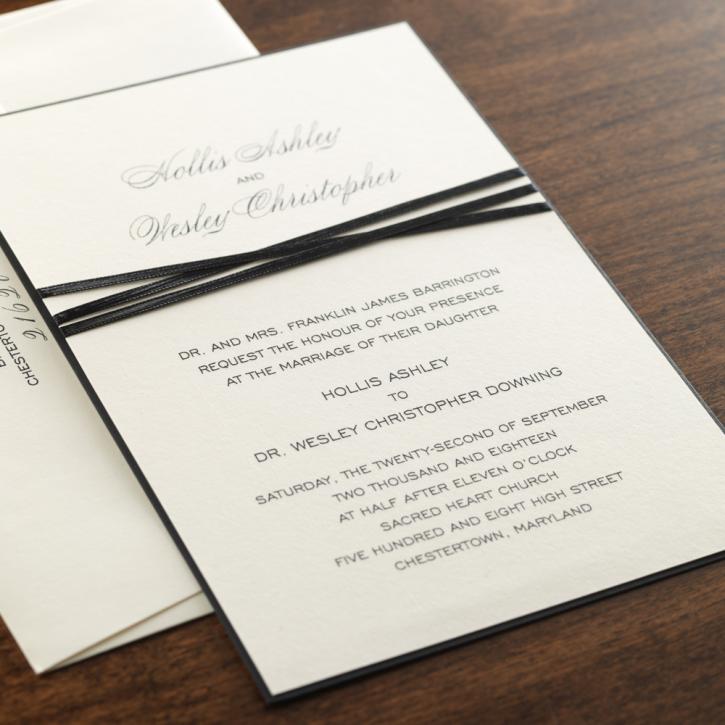 Hollis Ashley
AND
Wesley Christopher
DR. AND MRS. FRANKLIN JAMES BARRINGTON
REQUEST THE HONOUR OF YOUR PRESENCE
AT THE MARRIAGE OF THEIR DAUGHTER
HOLLIS ASHLEY
TO
DR. WESLEY CHRISTOPHER DOWNING
SATURDAY, THE TWENTY-SECOND OF SEPTEMBER
TWO THOUSAND AND EIGHTEEN
AT HALF AFTER ELEVEN O'CLOCK
SACRED HEART CHURCH
FIVE HUNDRED AND EIGHT HIGH STREET
CHESTERTOWN, MARYLAND